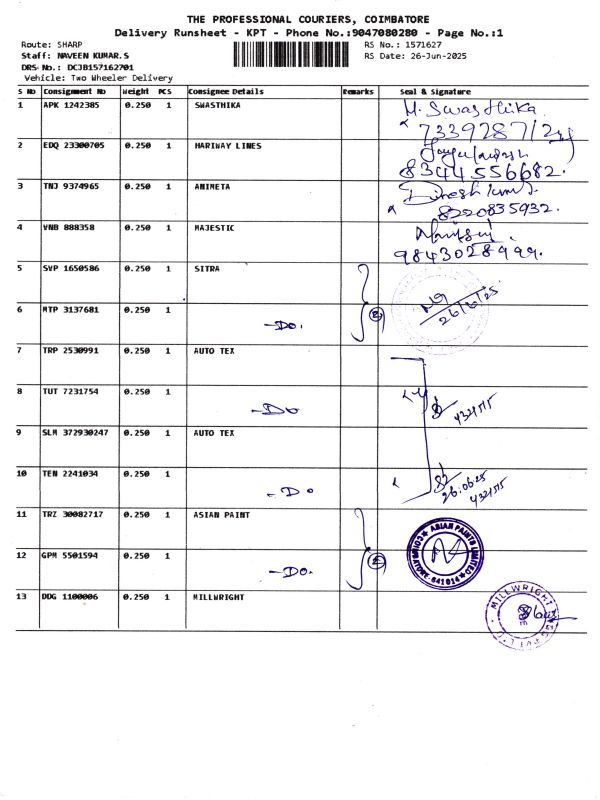 THE PROFESSIONAL COURIERS, COIMBATORE
Delivery Runsheet - KPT - Phone No.:9047080280 - Page No.:1
Route: SHARP
RS No.: 1571627
Staff: NAVEEN KUMAR.S
RS Date: 26-Jun-2025
DRS No.: DCJB157162701
Vehicle: Two Wheeler Delivery
S No Consignment No Weight PCS Consignee Details Remarks Seal & Signature
1 APK 1242385 0.250 1 SWASTHIKA M. Swasthika
2 EDQ 23300705 0.250 1 HARIWAY LINES
8344556682.
3 TNJ 9374965 0.250 1 ANIMETA Dinesh kumar.
8220835932.
4 VNB 888358 0.250 1 MAJESTIC
9843028999.
5 SVP 1650586 0.250 1 SITRA
26/6/25
6 MTP 3137681 0.250 1 -Do. 2
7 TRP 2530991 0.250 1 AUTO TEX
8 TUT 7231754 0.250 1 -Do 432515
9 SLM 372930247 0.250 1 AUTO TEX
10 TEN 2241034 0.250 1 -Do 26.06.25
432515
11 TRZ 30082717 0.250 1 ASIAN PAINT
ASIAN PAINTS LIMITED COIMBATORE-641014
12 GPM 5501594 0.250 1 -Do. 2
13 DDG 1100006 0.250 1 MILLWRIGHT
MILLWRIGHT